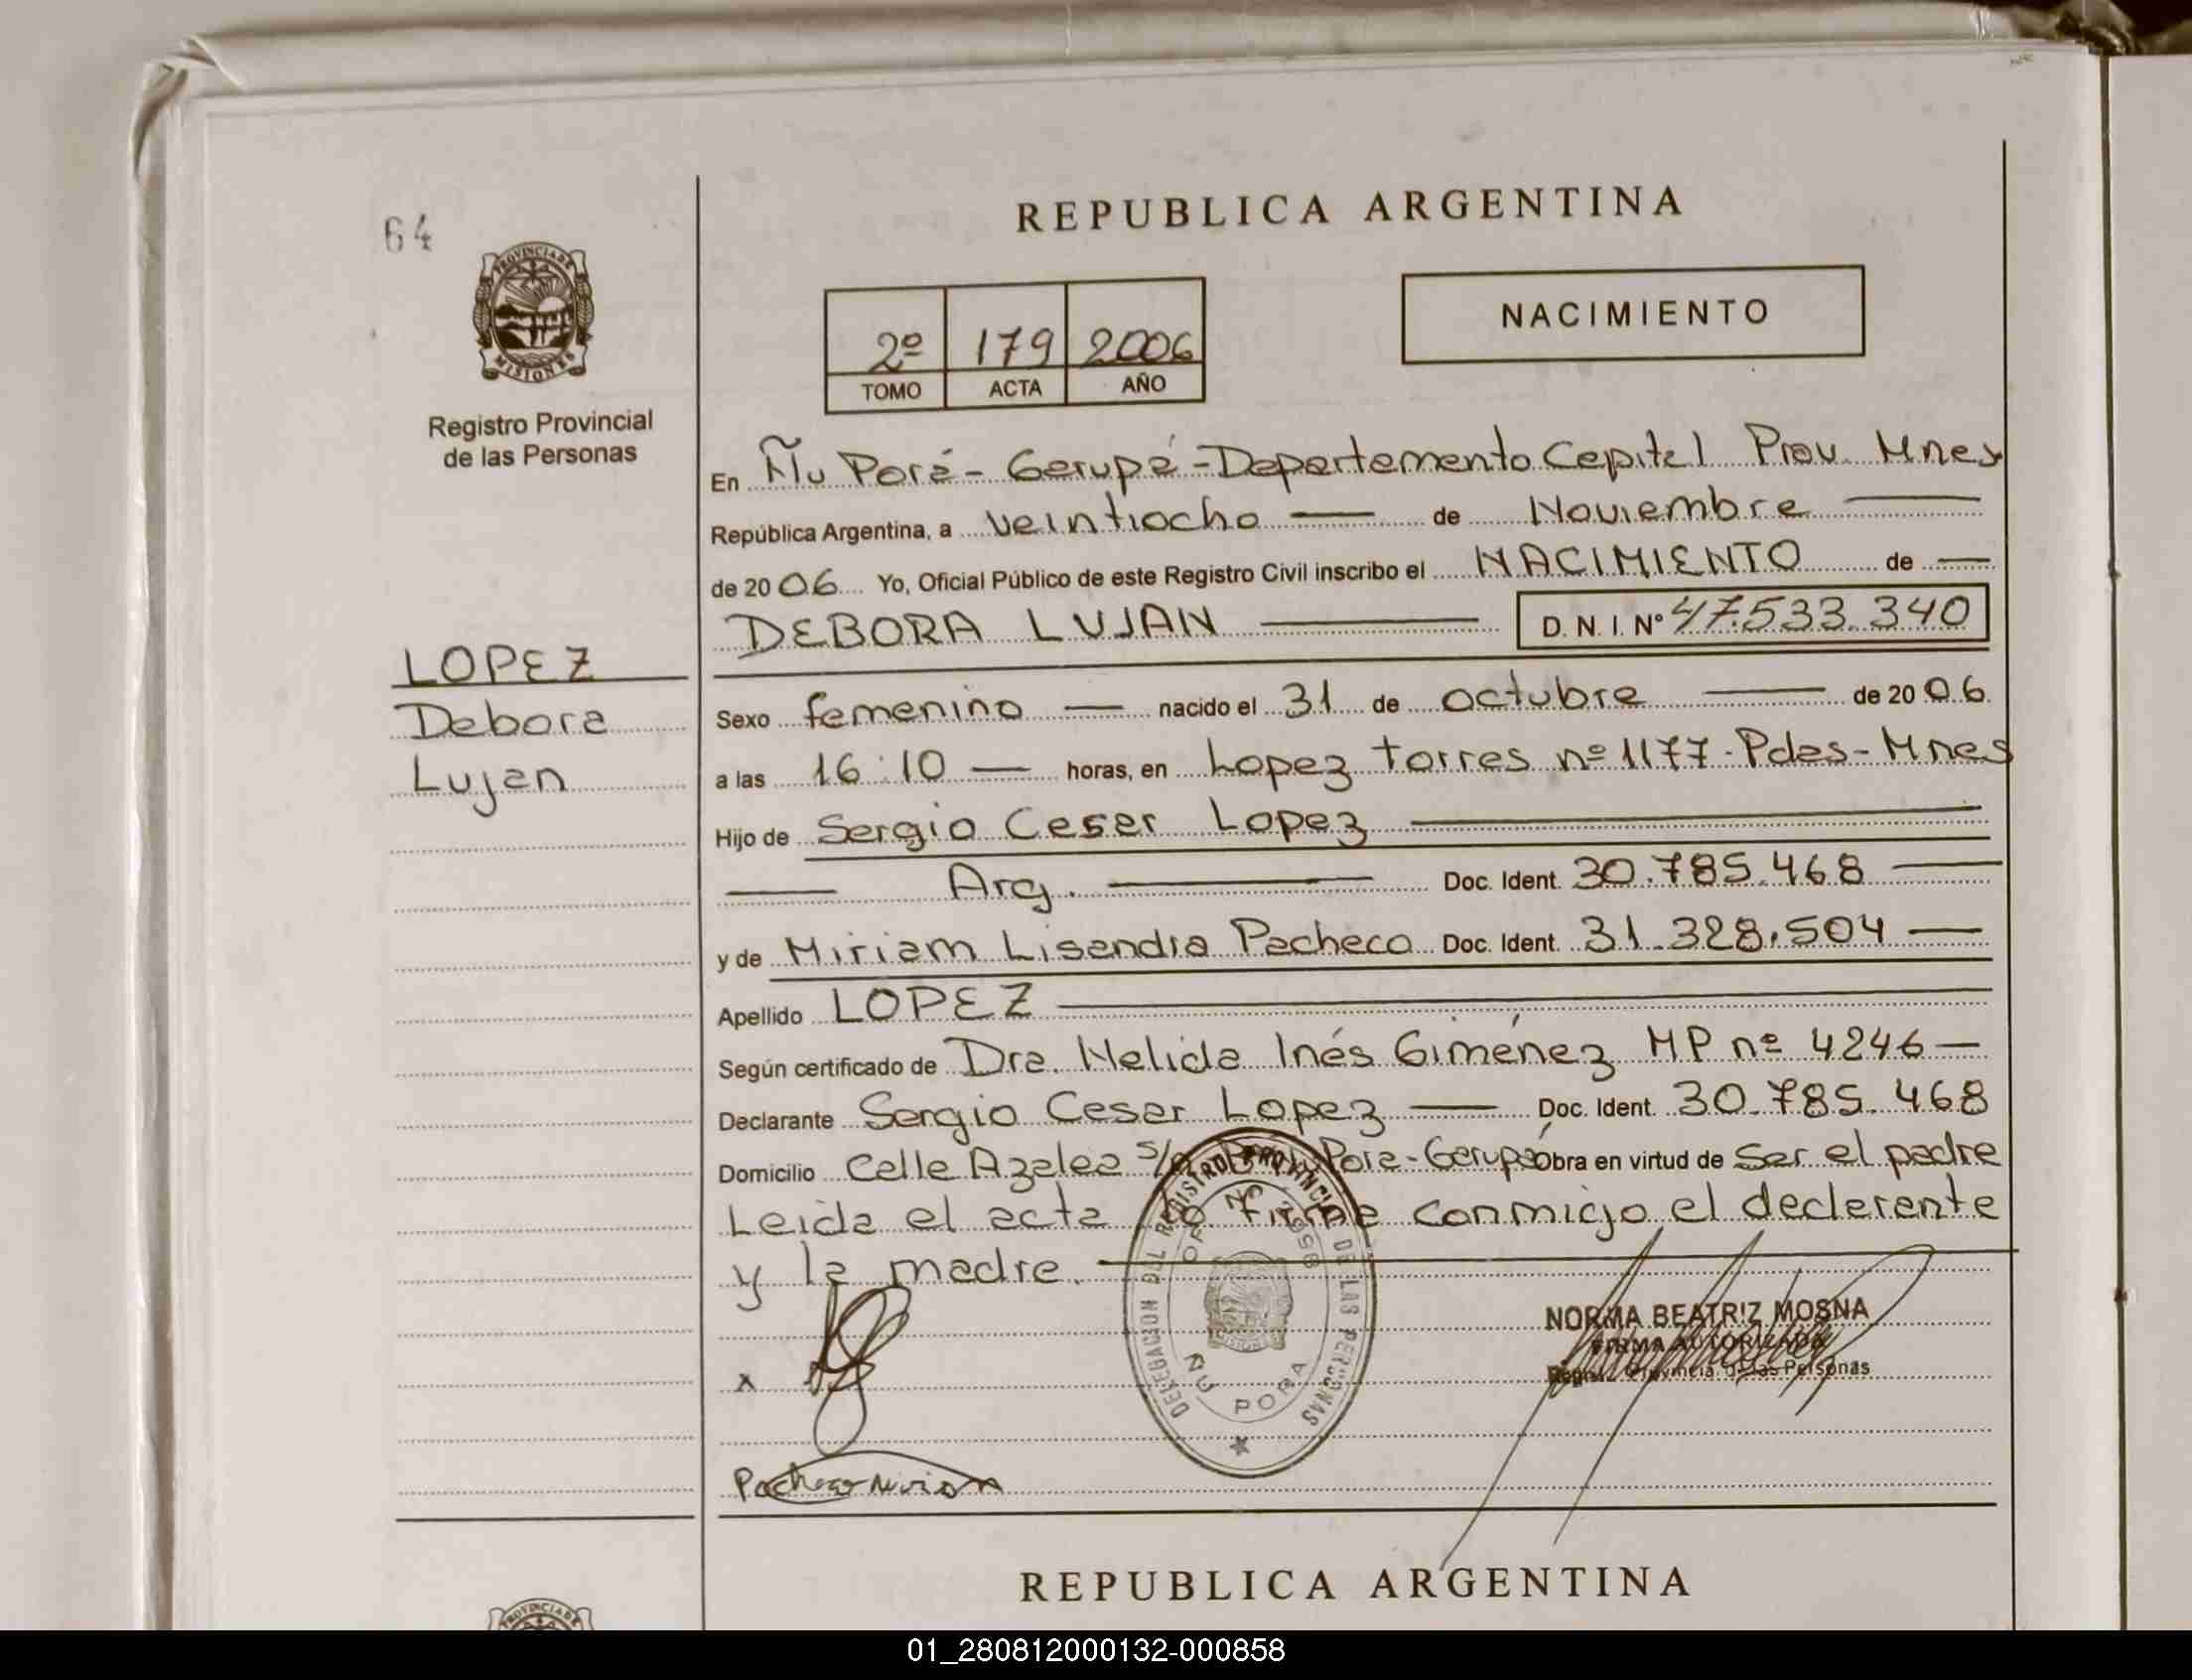 64
PROVINCIA DE
MISIONES
Registro Provincial
de las Personas
REPUBLICA ARGENTINA
2º 179 2006
TOMO ACTA AÑO
NACIMIENTO
En Ñu Porá - Garupá - Departamento Capital Prov. Mnes
República Argentina, a veintiocho de Noviembre
de 2006 Yo, Oficial Público de este Registro Civil inscribo el NACIMIENTO de
DEBORA LUJAN D. N. I. Nº 47.533.340
LOPEZ
Debora
Lujan
Sexo femenino nacido el 31 de octubre de 2006.
a las 16:10 horas, en Lopez Torres nº 1177 - Pdas - Mnes
Hijo de Sergio Cesar Lopez
Arg. Doc. Ident. 30.785.468
y de Miriam Lisandra Pacheco Doc. Ident. 31.328.504
Apellido LOPEZ
Según certificado de Dra. Nelida Inés Giménez MP nº 4246
Declarante Sergio Cesar Lopez Doc. Ident. 30.785.468
Domicilio Calle Azalea Porá - Garupá Obra en virtud de ser el padre
Leida el acta firma conmigo el declarante
y la madre.
DELEGACION DEL REGISTRO PROVINCIAL DE LAS PERSONAS
ÑU PORA
NORMA BEATRIZ MOSNA
FIRMA AUTORIZADA
Registro Provincial de las Personas
x
Pacheco Mirian
REPUBLICA ARGENTINA
PROVINCIA DE
01_280812000132-000858